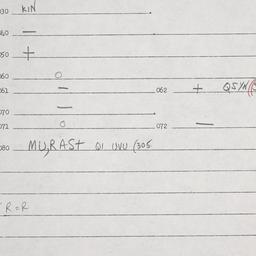 030 KIN
040 —
050 +
060 O
061 — 062 + QSYN
070 —
071 O 072 —
080 MU,RAST QI UVU (305
R=R